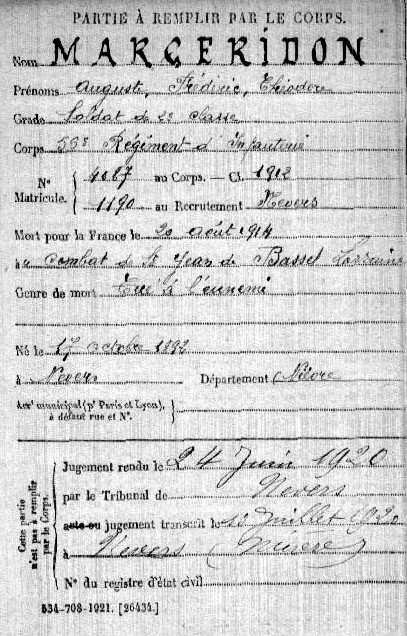 PARTIE À REMPLIR PAR LE CORPS.
Nom MARGERIDON
Prénoms Auguste, Frédéric, Théodore
Grade Soldat de 2e classe
Corps Régiment d'Infanterie
N° Matricule. { 4087 au Corps. — Cl. 1912
1190 au Recrutement Nevers
Mort pour la France le 20 août 1914
à Combat de St Jean de Bassel Lorraine
Genre de mort Tué à l'ennemi
Né le 17 octobre 1892
à Nevers Département Nièvre
Arr' municipal (p' Paris et Lyon),
à défaut rue et N°.
Cette partie n'est pas à remplir par le Corps.
Jugement rendu le 24 Juin 1920
par le Tribunal de Nevers
acte ou jugement transcrit le Juillet 1920
à Nevers (Nièvre)
N° du registre d'état civil
534-708-1921. [26434.]